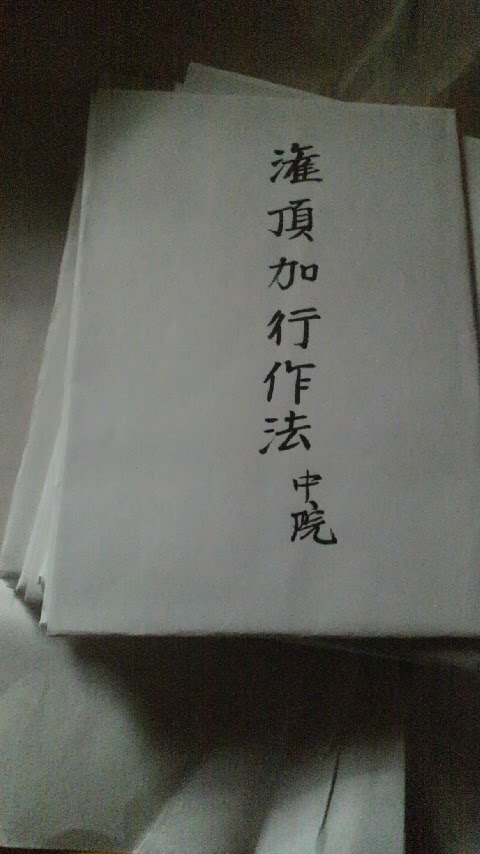 灌頂加行作法 中院